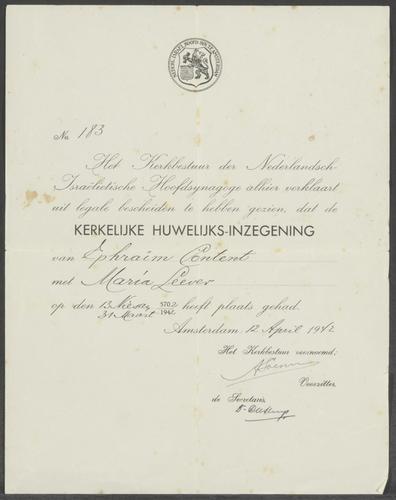 No. 183
Het Kerkbestuur der Nederlandsch-
Israëlietische Hoofdsynagoge alhier verklaart
uit legale bescheiden te hebben gezien, dat de
KERKELIJKE HUWELIJKS-INZEGENING
van Ephraïm Content
met Maria Leever
op den 13 Nisan 5702 heeft plaats gehad.
31 Maart 1942
Amsterdam, 12 April 1942
Het Kerkbestuur voornoemd;
Voorzitter.
de Secretaris,